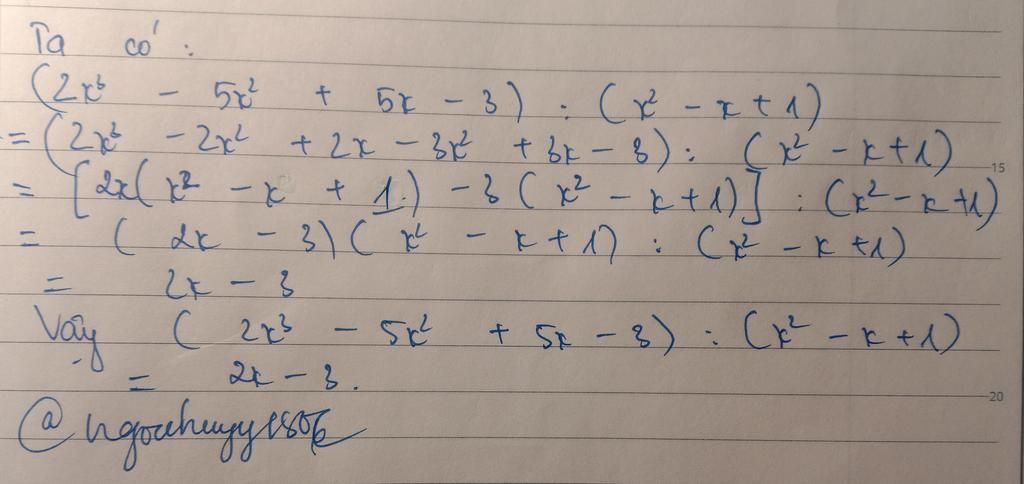 Ta có:
(2x³ - 5x² + 5x - 3) : (x² - x + 1)
= (2x³ - 2x² + 2x - 3x² + 3x - 3) : (x² - x + 1)
= [2x(x² - x + 1) - 3(x² - x + 1)] : (x² - x + 1)
= (2x - 3)(x² - x + 1) : (x² - x + 1)
= 2x - 3
Vậy (2x³ - 5x² + 5x - 3) : (x² - x + 1)
= 2x - 3.
15
20